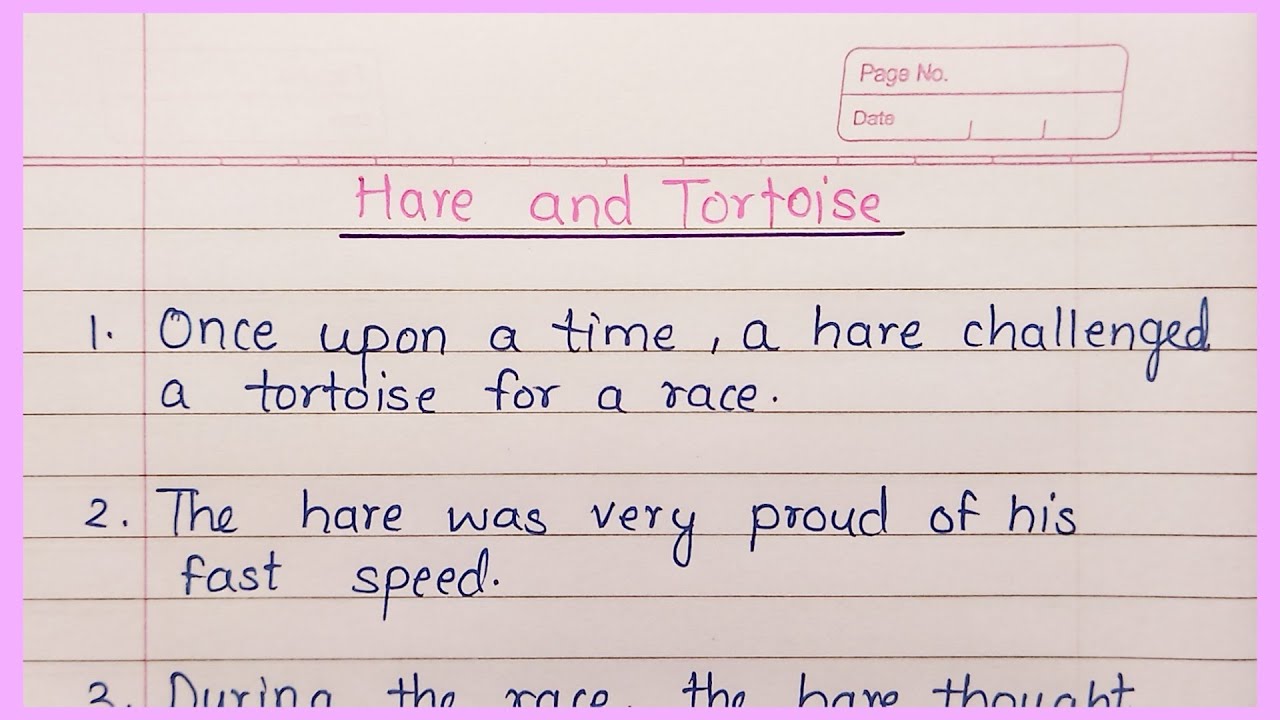 Page No.
Date
Hare and Tortoise
1. Once upon a time, a hare challenged
a tortoise for a race.
2. The hare was very proud of his
fast speed.
3. During the race, the hare thought